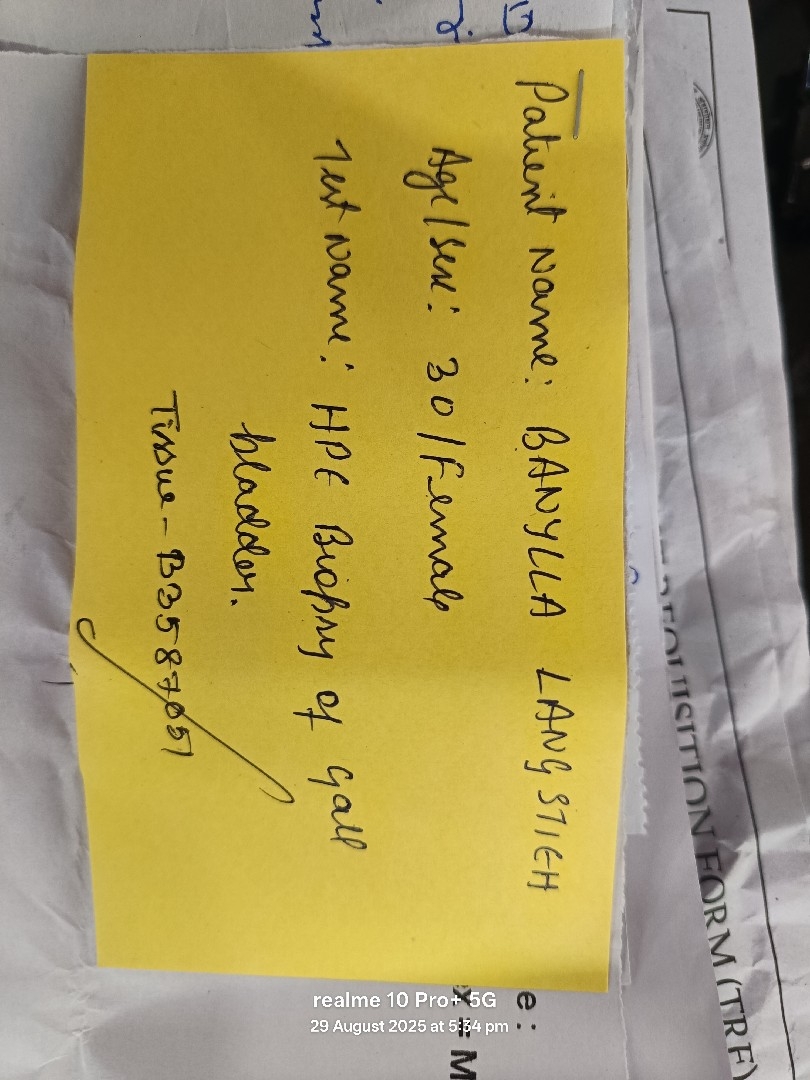 Patient Name: BANYLLA LANGSTIEH
Age/Sex: 30/Female
Test Name: HPE Biopsy of Gall
bladder.
Tissue - B3587051
REQUISITION FORM (TRF)
e :
x : M
realme 10 Pro+ 5G
29 August 2025 at 5:34 pm